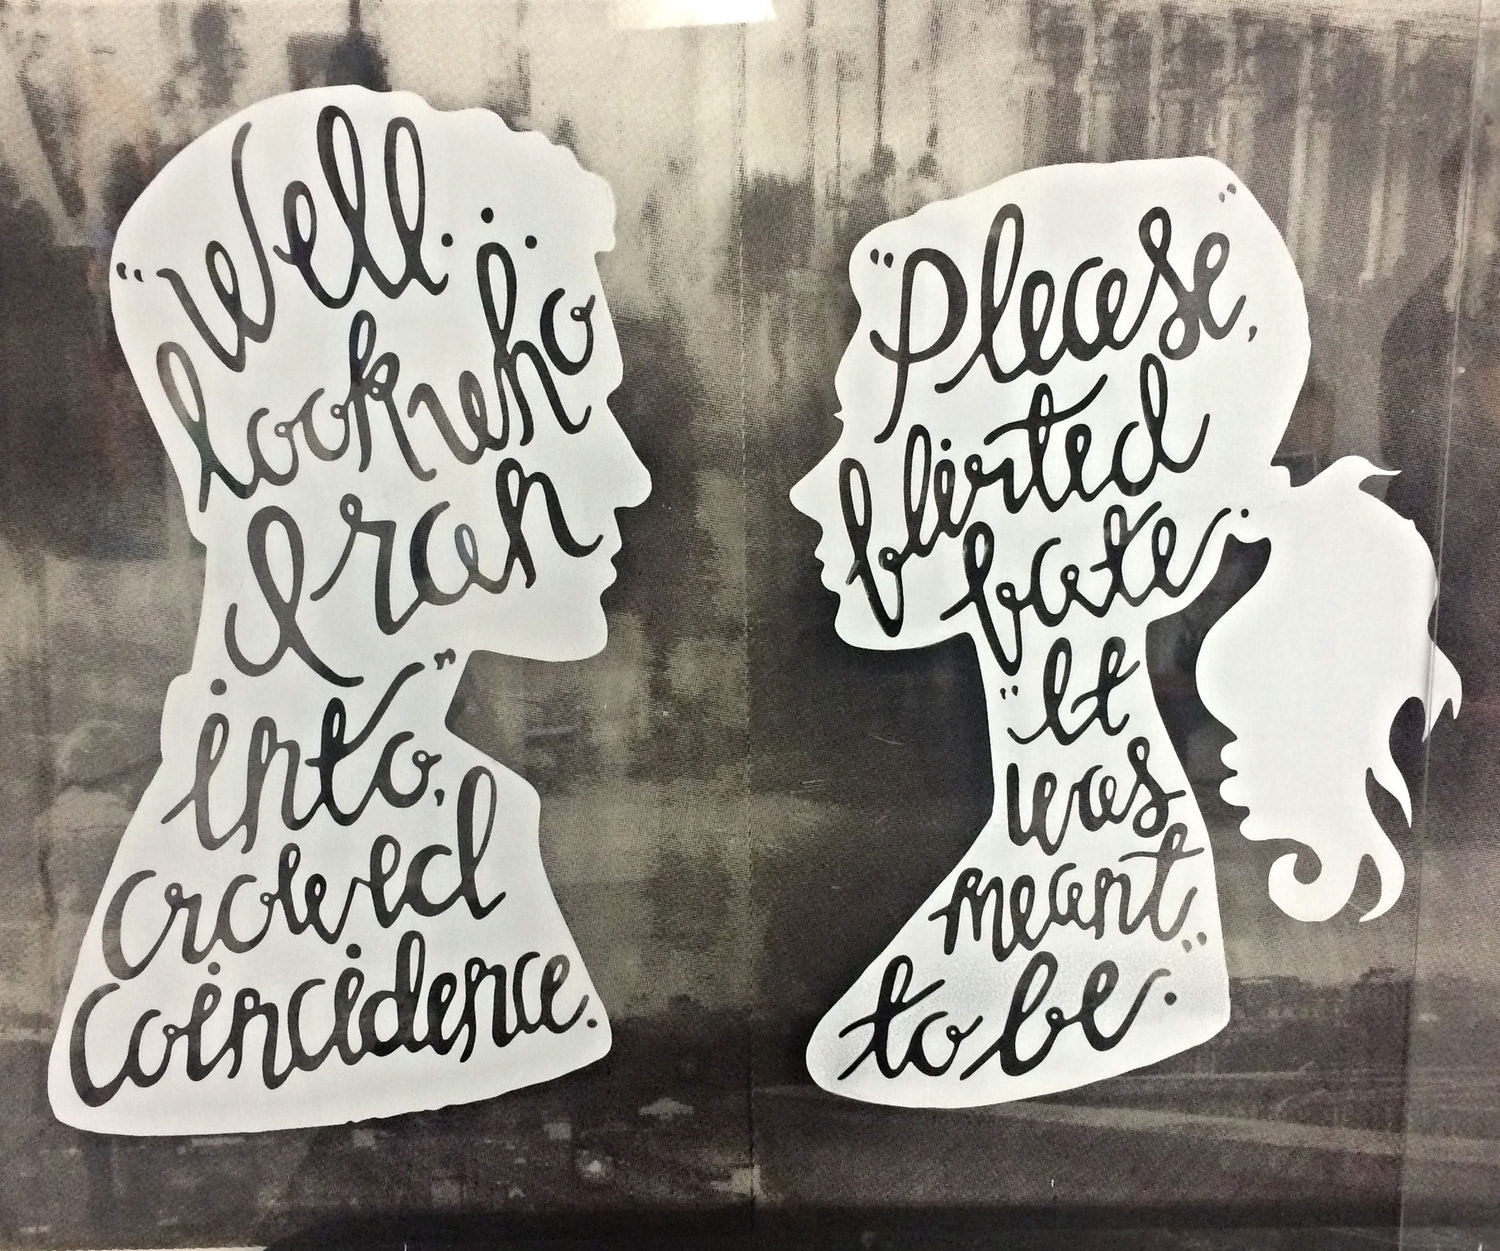 "Well...
look who
I ran
into,"
crowed
Coincidence.
"Please,"
flirted
fate.
"It
was
meant
to be."